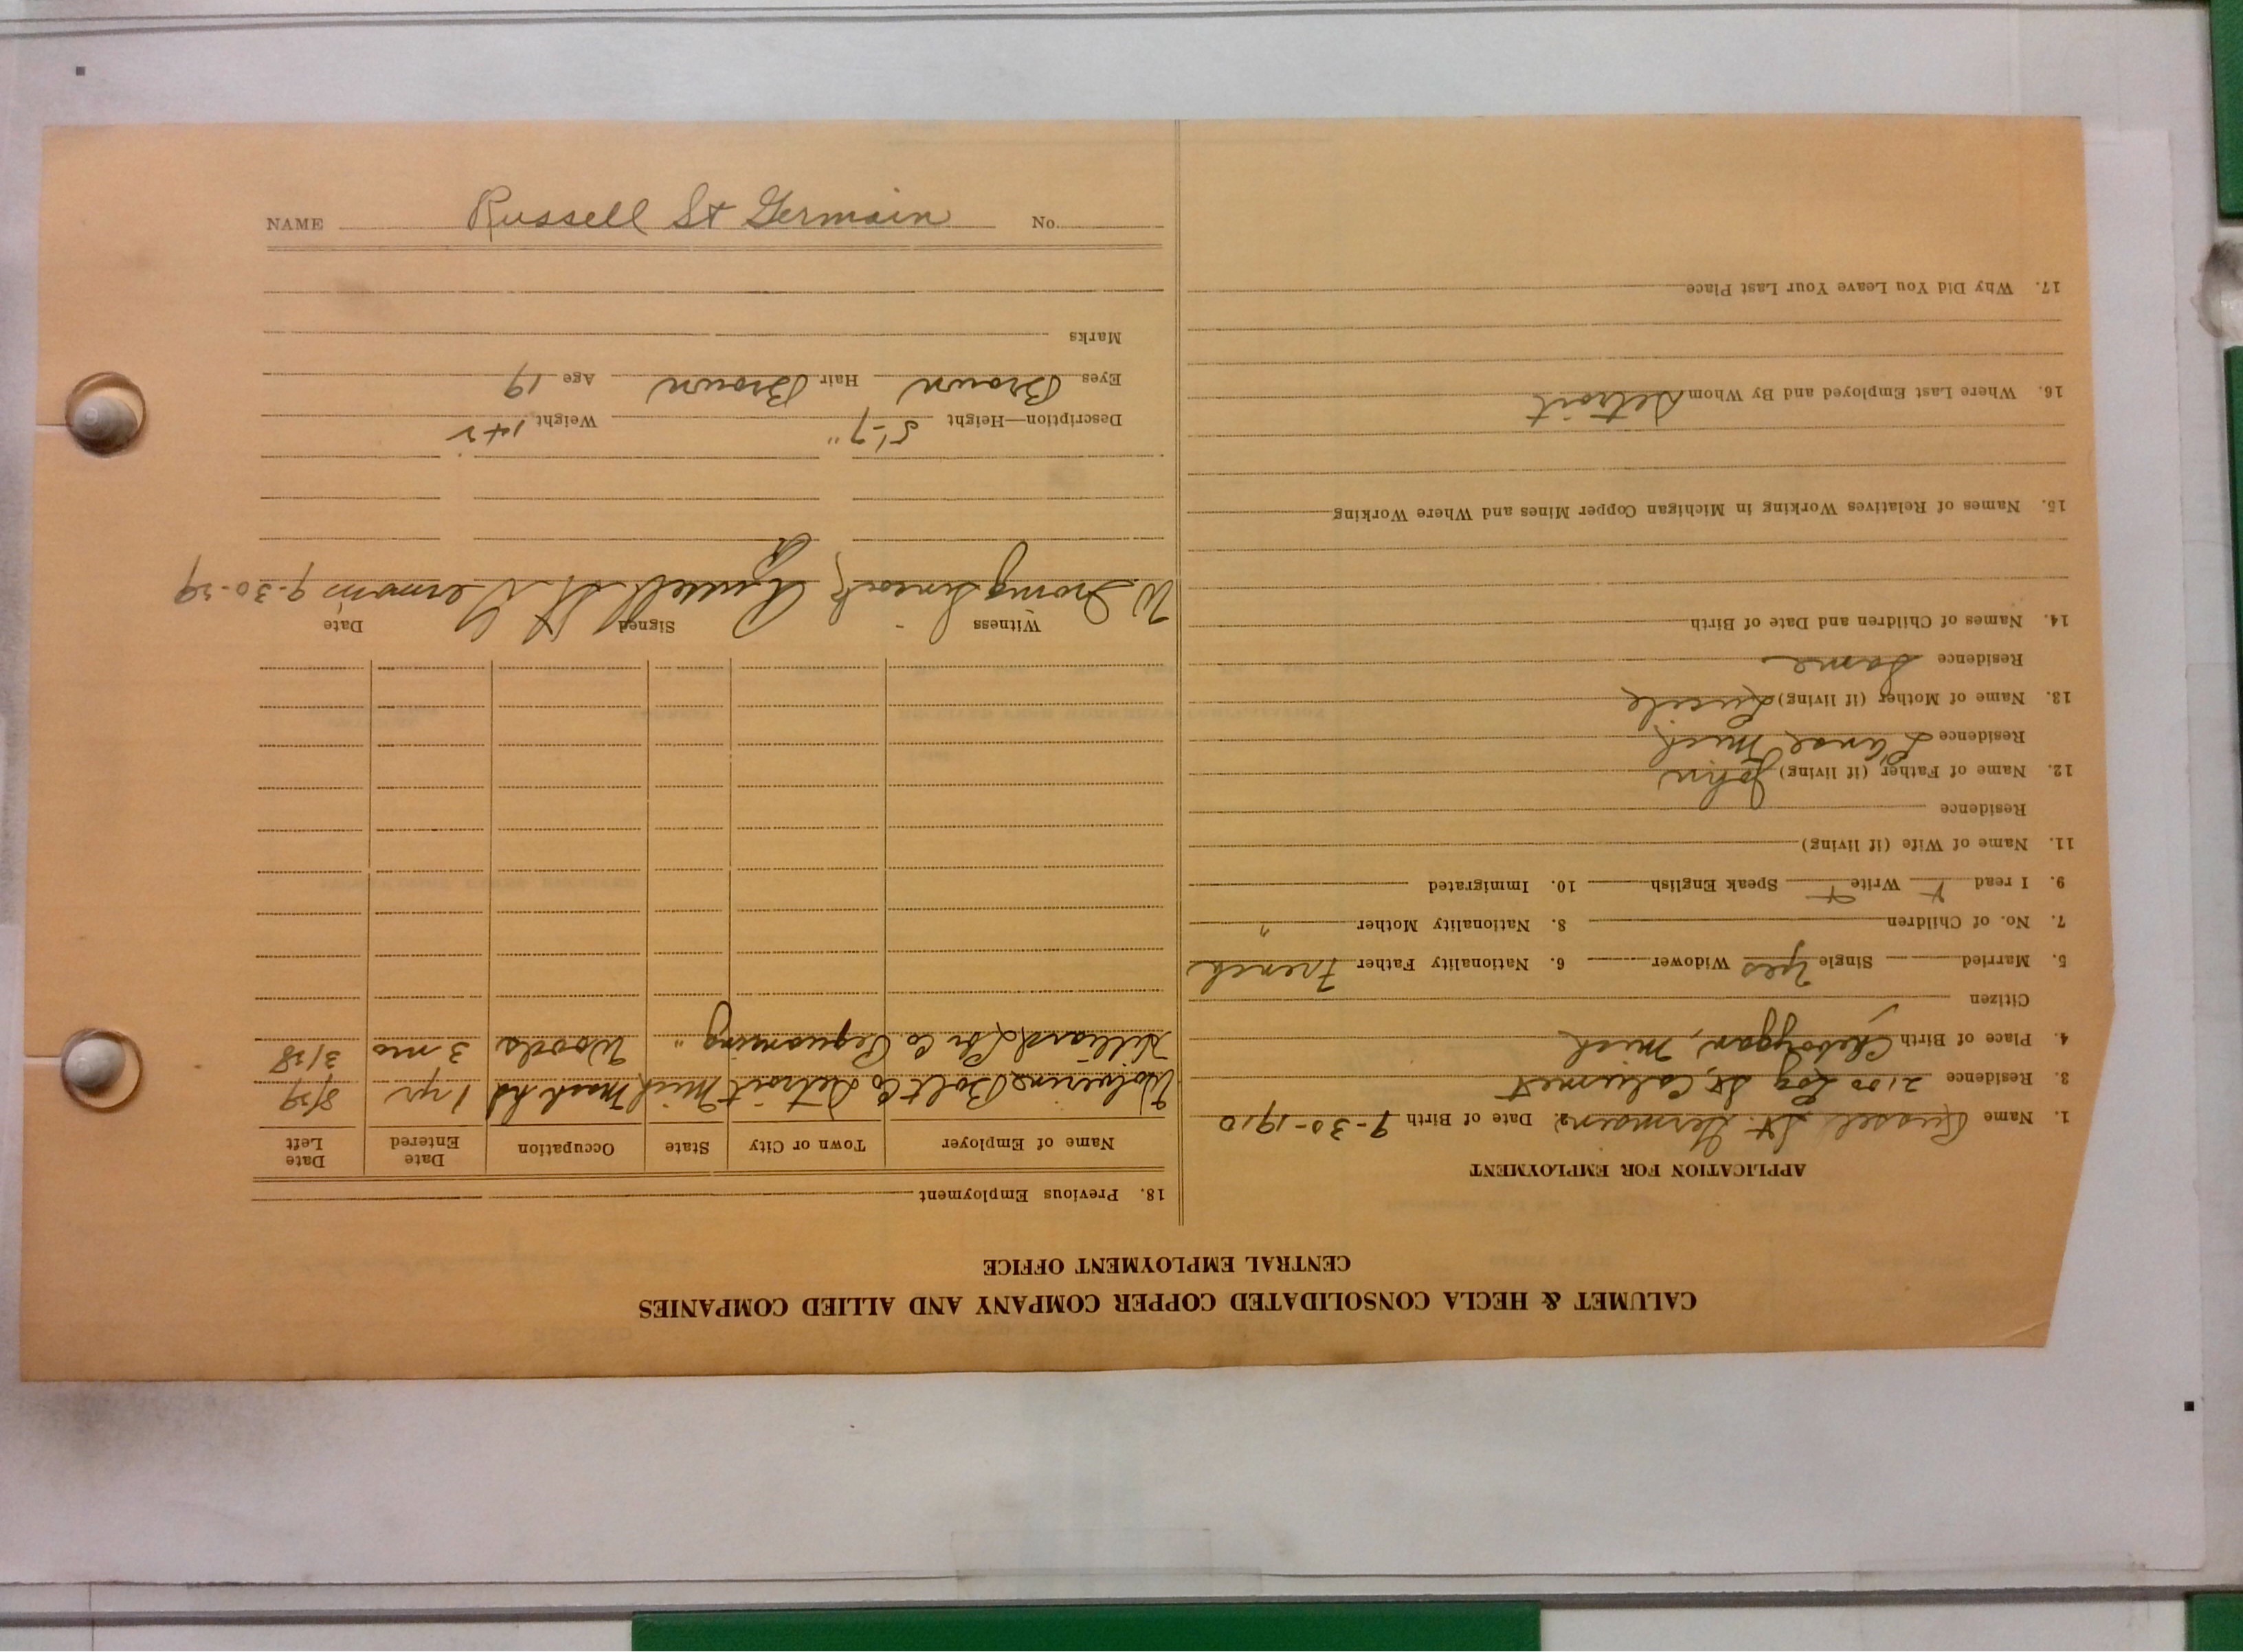 CALUMET & HECLA CONSOLIDATED COPPER COMPANY AND ALLIED COMPANIES
CENTRAL EMPLOYMENT OFFICE
APPLICATION FOR EMPLOYMENT
1. Name Russel St. Germain 2. Date of Birth 9-30-1910
3. Residence 2100 Log St, Calumet
4. Place of Birth Cheboygan, Mich
Citizen
5. Married Single Yes Widower 6. Nationality Father French
7. No. of Children 8. Nationality Mother "
9. I read + Write + Speak English 10. Immigrated
11. Name of Wife (if living)
Residence
12. Name of Father (if living) John
Residence L'anse Mich
13. Name of Mother (if living) Lucile
Residence Same
14. Names of Children and Date of Birth
15. Names of Relatives Working in Michigan Copper Mines and Where Working
16. Where Last Employed and By Whom Detroit
17. Why Did You Leave Your Last Place
18. Previous Employment
Name of Employer Town or City State Occupation Date Entered Date Left
Wolverine Bolt Co Detroit Mich Mach hd 1 yr 8/29
Lbr Co Pequaming " Woods 3 mo 3/28
Witness Signed Date
W Irving Russell St Germain 9-30-29
Description—Height 5'-7" Weight 142
Eyes Brown Hair Brown Age 19
Marks
NAME Russell St Germain No.